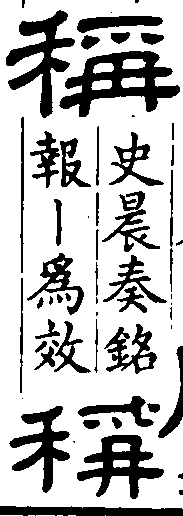 稱
史晨奏銘
報丨爲效
稱